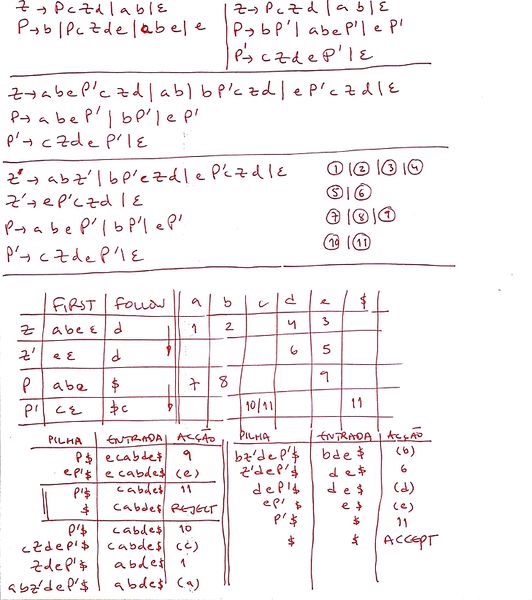 Z → P c Z d | a b | ε
P → b | P c Z d e | a b e | e
Z → P c Z d | a b | ε
P → b P' | a b e P' | e P'
P' → c Z d e P' | ε
Z → a b e P' c Z d | a b | b P' c Z d | e P' c Z d | ε
P → a b e P' | b P' | e P'
P' → c Z d e P' | ε
Z → a b Z' | b P' c Z d | e P' c Z d | ε ① | ② | ③ | ④
Z' → e P' c Z d | ε ⑤ | ⑥
P → a b e P' | b P' | e P' ⑦ | ⑧ | ⑨
P' → c Z d e P' | ε ⑩ | ⑪
FIRST FOLLOW a b c d e $
Z a b e ε d 1 2 4 3
Z' e ε d 6 5
P a b e $ 7 8 9
P' c ε $ c 10/11 11
PILHA ENTRADA ACÇÃO
P$ e c a b d e $ 9
e P' $ e c a b d e $ (e)
P' $ c a b d e $ 11
$ c a b d e $ REJECT
P' $ c a b d e $ 10
c Z d e P' $ c a b d e $ (c)
Z d e P' $ a b d e $ 1
a b Z' d e P' $ a b d e $ (a)
PILHA ENTRADA ACÇÃO
b Z' d e P' $ b d e $ (b)
Z' d e P' $ d e $ 6
d e P' $ d e $ (d)
e P' $ e $ (e)
P' $ $ 11
$ $ ACCEPT